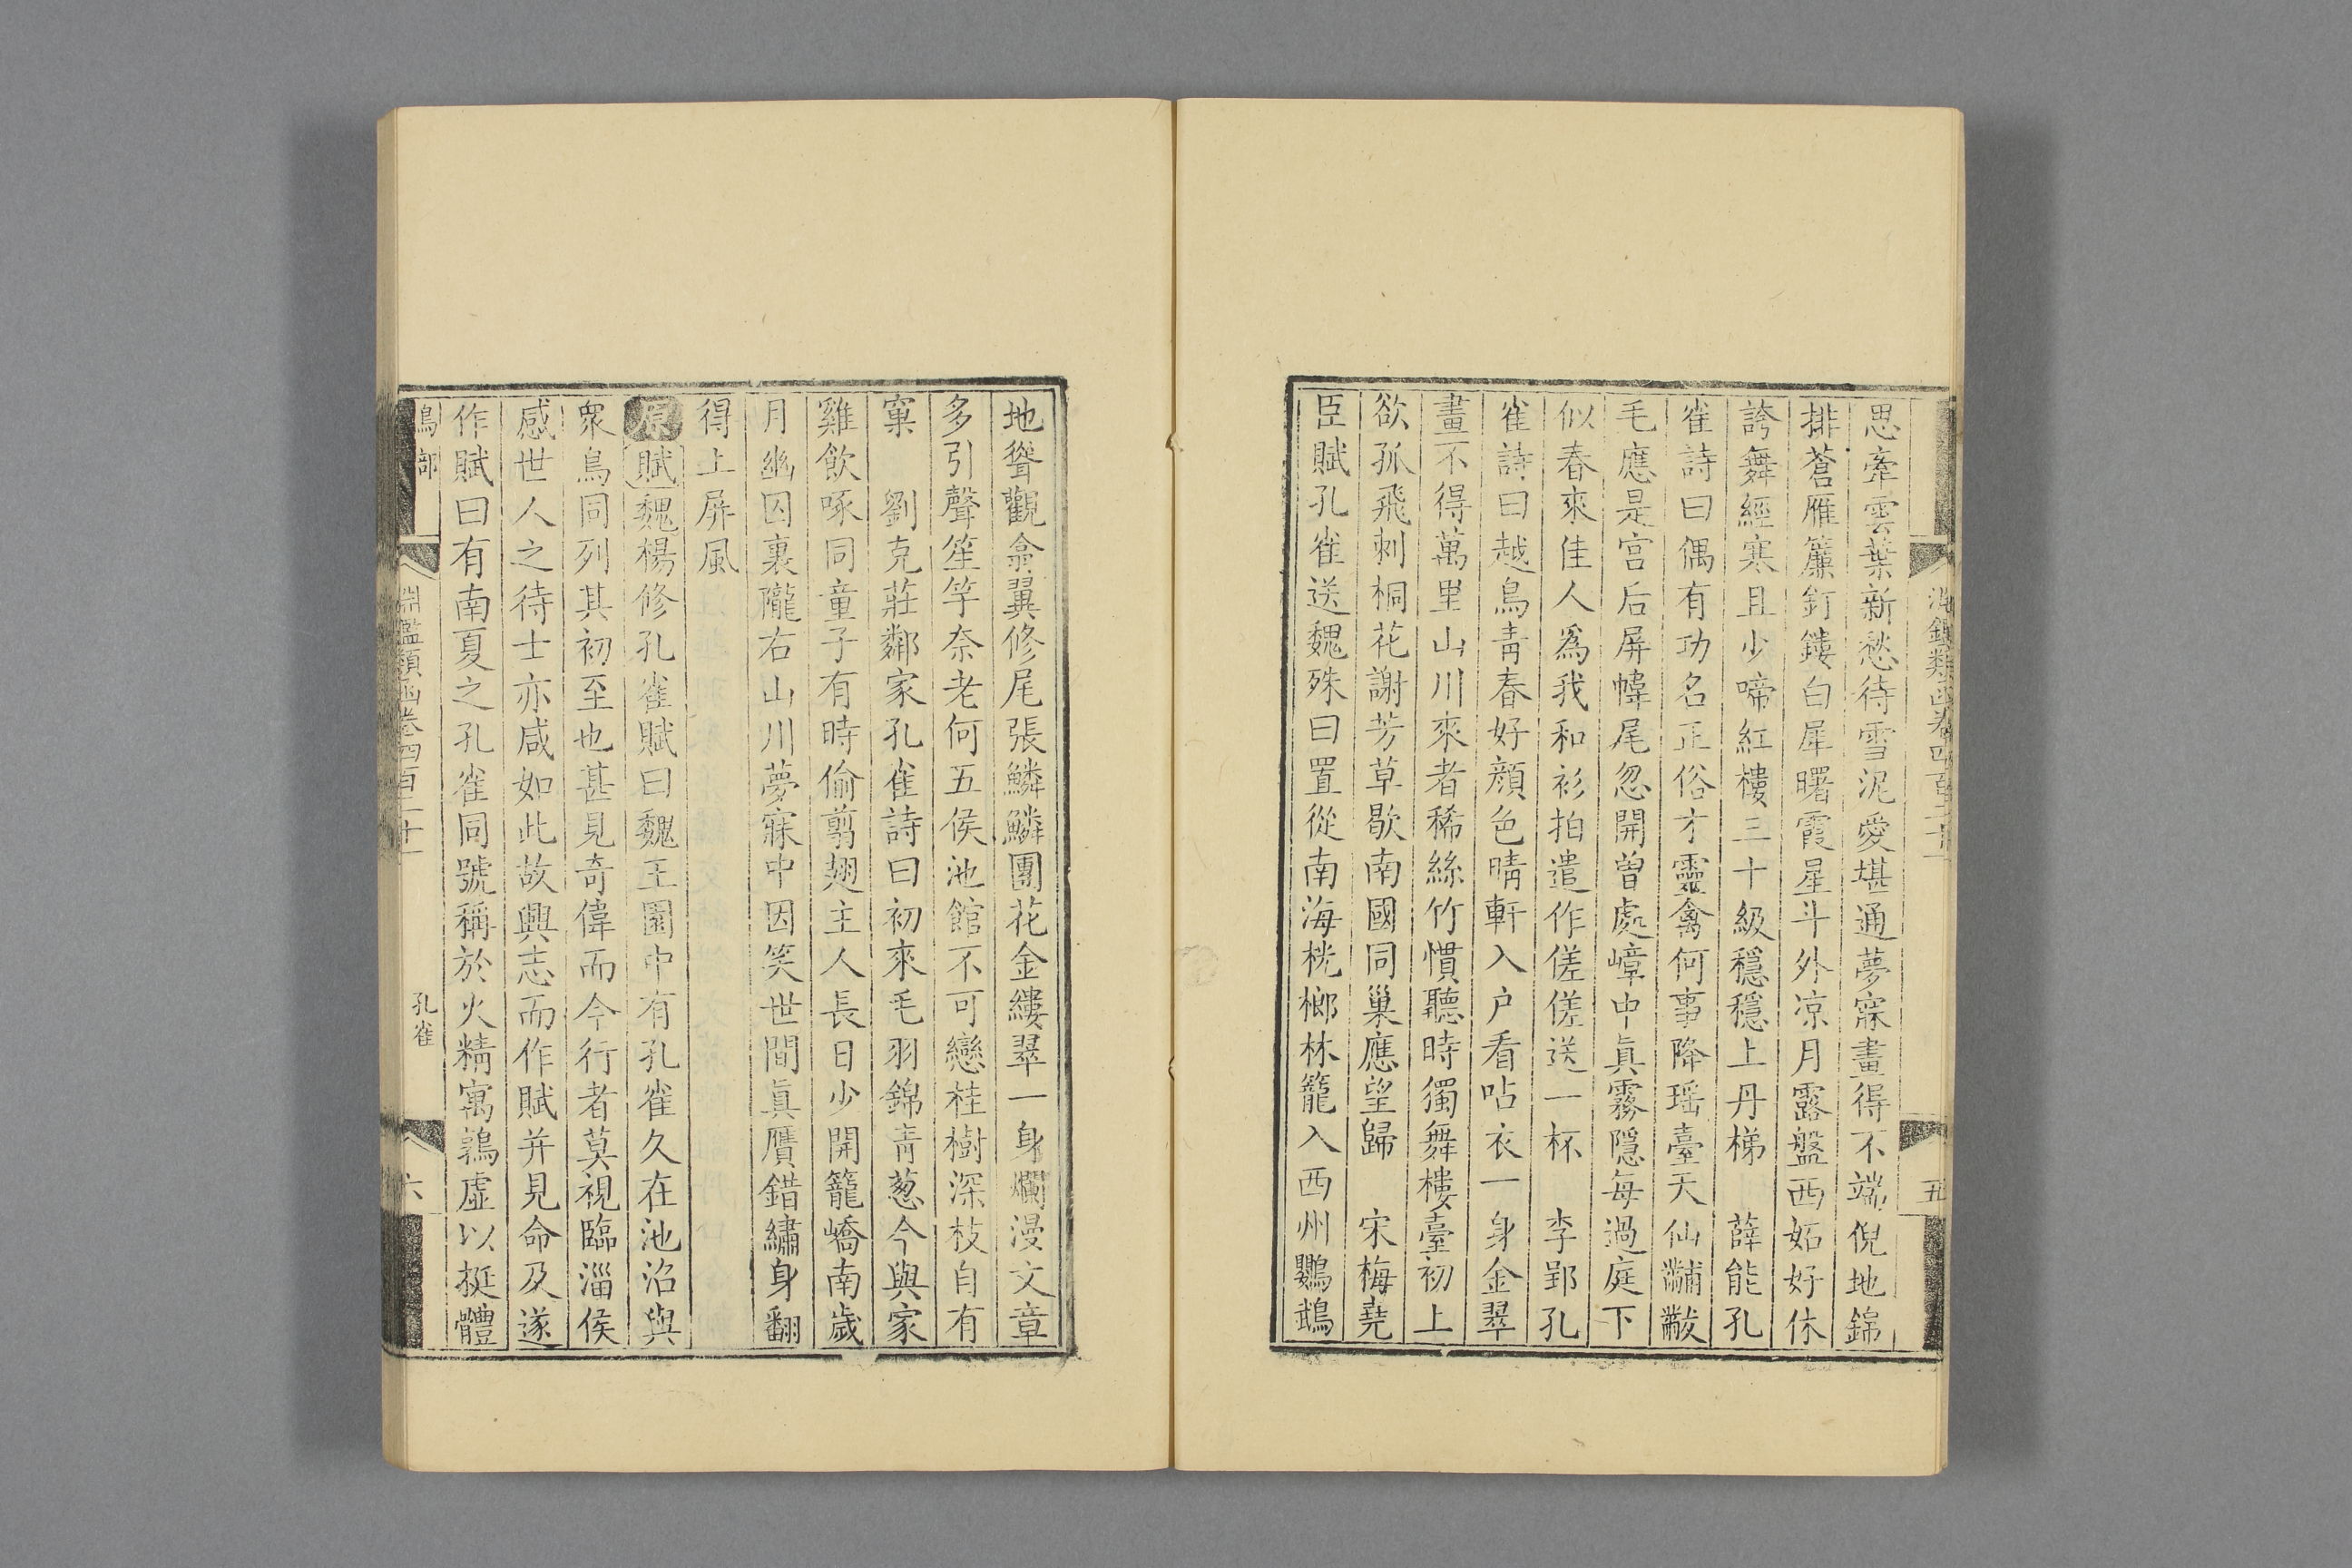 思牽雲葉新愁待雪泥愛堪通夢寐畫得不端倪地錦
排蒼雁簾釘鏤白犀曙霞星斗外凉月露盤西妬好休
誇舞經寒且少啼紅樓三十級穩穩上丹梯　薛能孔
雀詩曰偶有功名正俗才靈禽何事降瑶臺天仙黼黻
毛應是宫后屏幃尾忽開曽處嶂中眞霧隱每過庭下
似春來佳人爲我和衫拍遣作傞傞送一杯　李郢孔
雀詩曰越鳥青春好顔色晴軒入户看呫衣一身金翠
畫不得萬里山川來者稀絲竹慣聽時獨舞樓臺初上
欲孤飛刺桐花謝芳草歇南國同巢應望歸　宋梅堯
臣賦孔雀送魏殊曰置從南海桄榔林籠入西州鸚鵡
五
地聳觀翕翼修尾張鱗鱗團花金縷翠一身爛漫文章
多引聲笙竽奈老何五侯池館不可戀桂樹深枝自有
窠　劉克莊鄰家孔雀詩曰初來毛羽錦青葱今與家
雞飲啄同童子有時偷翦翅主人長日少開籠嶠南歲
月幽囚裏隴右山川夢寐中因笑世間眞贋錯繡身翻
得上屏風
原賦魏楊修孔雀賦曰魏王園中有孔雀久在池沼與
衆鳥同列其初至也甚見奇偉而今行者莫視臨淄侯
感世人之待士亦咸如此故興志而作賦并見命及遂
作賦曰有南夏之孔雀同號稱於火精寓鶉虛以挺體
鳥部
淵鑑類函卷四百二十一
孔雀
六